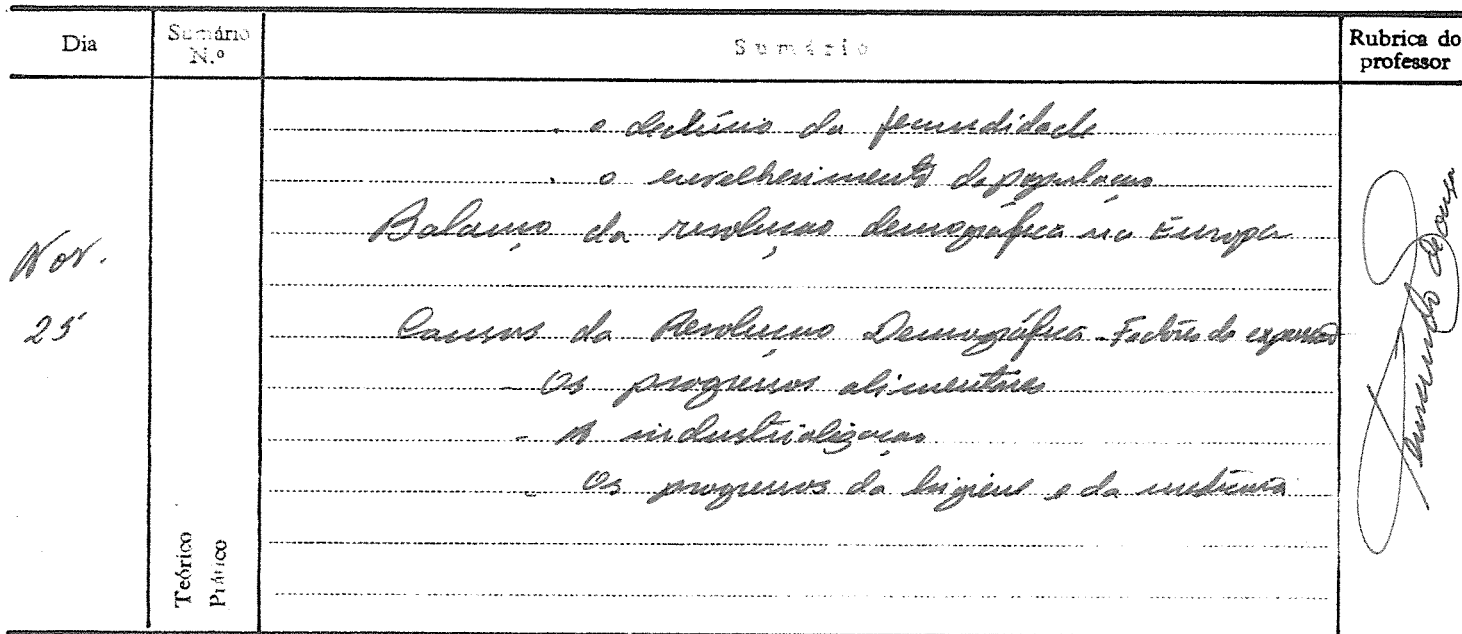 Dia
Sumário N.º
Sumário
Rubrica do professor
Nov.
25
. o declínio da fecundidade
. o envelhecimento da população
Balanço da revolução demográfica na Europa
Causas da Revolução Demográfica - Factores de expansão
- Os progressos alimentares
- A industrialização
- Os progressos da higiene e da medicina
Teórico
Prático
Fernando de Sousa